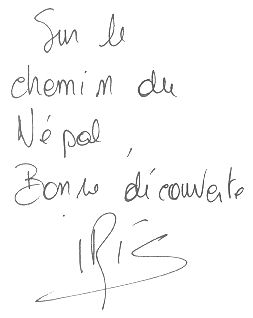 Sur le
chemin du
Népal,
Bonne découverte
IRIS